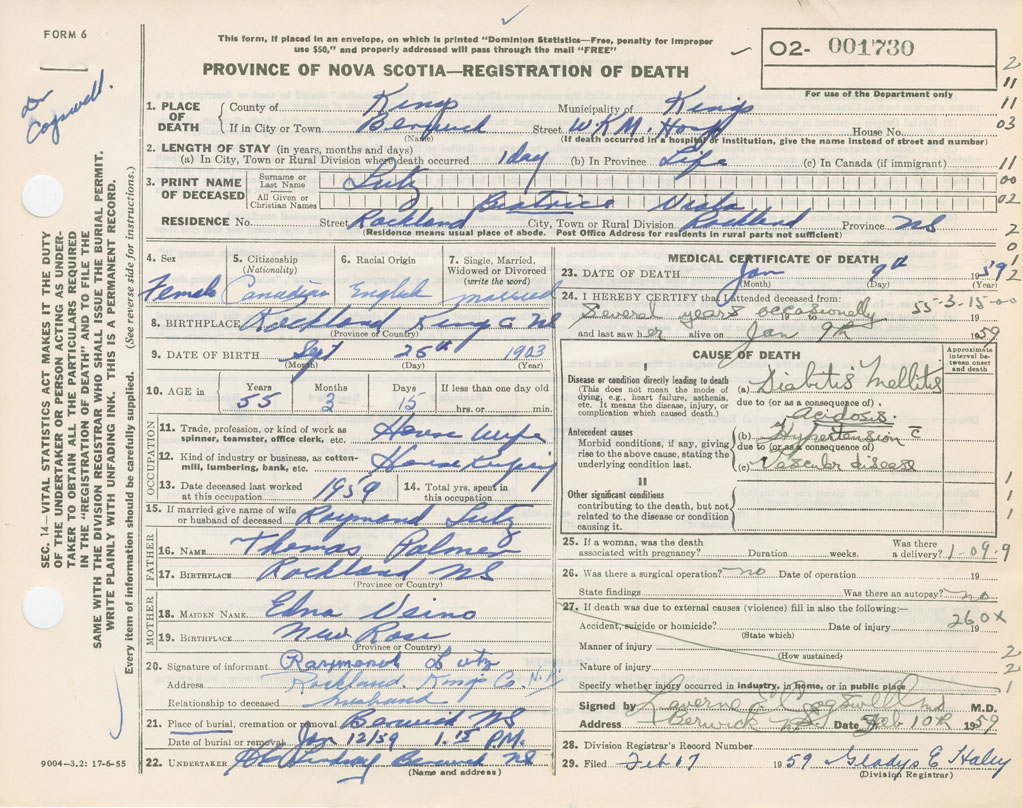 FORM 6
This form, if placed in an envelope, on which is printed "Dominion Statistics—Free, penalty for improper
use $50," and properly addressed will pass through the mail "FREE"
PROVINCE OF NOVA SCOTIA—REGISTRATION OF DEATH
02- 001730
For use of the Department only
Dr Cogswell.
SEC. 14—VITAL STATISTICS ACT MAKES IT THE DUTY
OF THE UNDERTAKER OR PERSON ACTING AS UNDER-
TAKER TO OBTAIN ALL THE PARTICULARS REQUIRED
IN THE "REGISTRATION OF DEATH" AND TO FILE THE
SAME WITH THE DIVISION REGISTRAR WHO SHALL ISSUE THE BURIAL PERMIT.
WRITE PLAINLY WITH UNFADING INK. THIS IS A PERMANENT RECORD.
Every item of information should be carefully supplied. (See reverse side for instructions.)
1. PLACE OF DEATH County of Kings Municipality of Kings
If in City or Town Berwick Street W.K.M. Hosp House No.
(Name) (If death occurred in a hospital or institution, give the name instead of street and number)
2. LENGTH OF STAY (in years, months and days)
(a) In City, Town or Rural Division where death occurred 1 day (b) In Province Life (c) In Canada (if immigrant)
3. PRINT NAME OF DECEASED Surname or Last Name Lutz
All Given or Christian Names Beatrice Viola
RESIDENCE No. Street Rockland City, Town or Rural Division Rockland Province NS
(Residence means usual place of abode. Post Office Address for residents in rural parts not sufficient)
4. Sex 5. Citizenship (Nationality) 6. Racial Origin 7. Single, Married, Widowed or Divorced (write the word)
Female Canadian English married
8. BIRTHPLACE Rockland Kings Co NS
(Province or Country)
9. DATE OF BIRTH Sept 25th 1903
(Month) (Day) (Year)
10. AGE in Years Months Days If less than one day old
55 3 15 hrs. or min.
OCCUPATION
11. Trade, profession, or kind of work as spinner, teamster, office clerk, etc. House Wife
12. Kind of industry or business, as cotton-mill, lumbering, bank, etc. House Keeping
13. Date deceased last worked at this occupation 1959 14. Total yrs. spent in this occupation
15. If married give name of wife or husband of deceased Raymond Lutz
FATHER
16. NAME Thomas Palmer
17. BIRTHPLACE Rockland NS
(Province or Country)
MOTHER
18. MAIDEN NAME Edna
19. BIRTHPLACE New Ross
(Province or Country)
20. Signature of informant Raymond Lutz
Address Rockland. Kings Co. N.S.
Relationship to deceased husband
21. Place of burial, cremation or removal Berwick NS
Date of burial or removal Jan 12/59 1.15 P.M.
22. UNDERTAKER Berwick NS
(Name and address)
9004—3.2: 17-6-55
MEDICAL CERTIFICATE OF DEATH
23. DATE OF DEATH Jan 9th 1959
(Month) (Day) (Year)
24. I HEREBY CERTIFY that I attended deceased from:
Several years occasionally to 19
55-3-15-00
and last saw her alive on Jan 9th 1959
CAUSE OF DEATH
Approximate interval between onset and death
I
Disease or condition directly leading to death (a) Diabitis Mellitis
(This does not mean the mode of dying, e.g., heart failure, asthenia, etc. It means the disease, injury, or complication which caused death.)
due to (or as a consequence of).
Acidosis.
Antecedent causes (b) Hypertension c̄
Morbid conditions, if any, giving rise to the above cause, stating the underlying condition last.
due to (or as a consequence of)
(c) Vascular disease
II
Other significant conditions
contributing to the death, but not
related to the disease or condition
causing it.
25. If a woman, was the death associated with pregnancy? Duration weeks. Was there a delivery?
1-09-9
26. Was there a surgical operation? no Date of operation 19
State findings Was there an autopsy? no
27. If death was due to external causes (violence) fill in also the following:—
260X
Accident, suicide or homicide? Date of injury 19
(State which)
Manner of injury
(How sustained)
Nature of injury
Specify whether injury occurred in industry, in home, or in public place
Signed by Laverne Cogswell M.D.
Address Berwick NS Date Feb 10th 1959
28. Division Registrar's Record Number
29. Filed Feb 17 1959 Gladys E Haley
(Division Registrar)
2
11
11
03
11
00
02
2
0
1
2
1
1
1
2
2
1